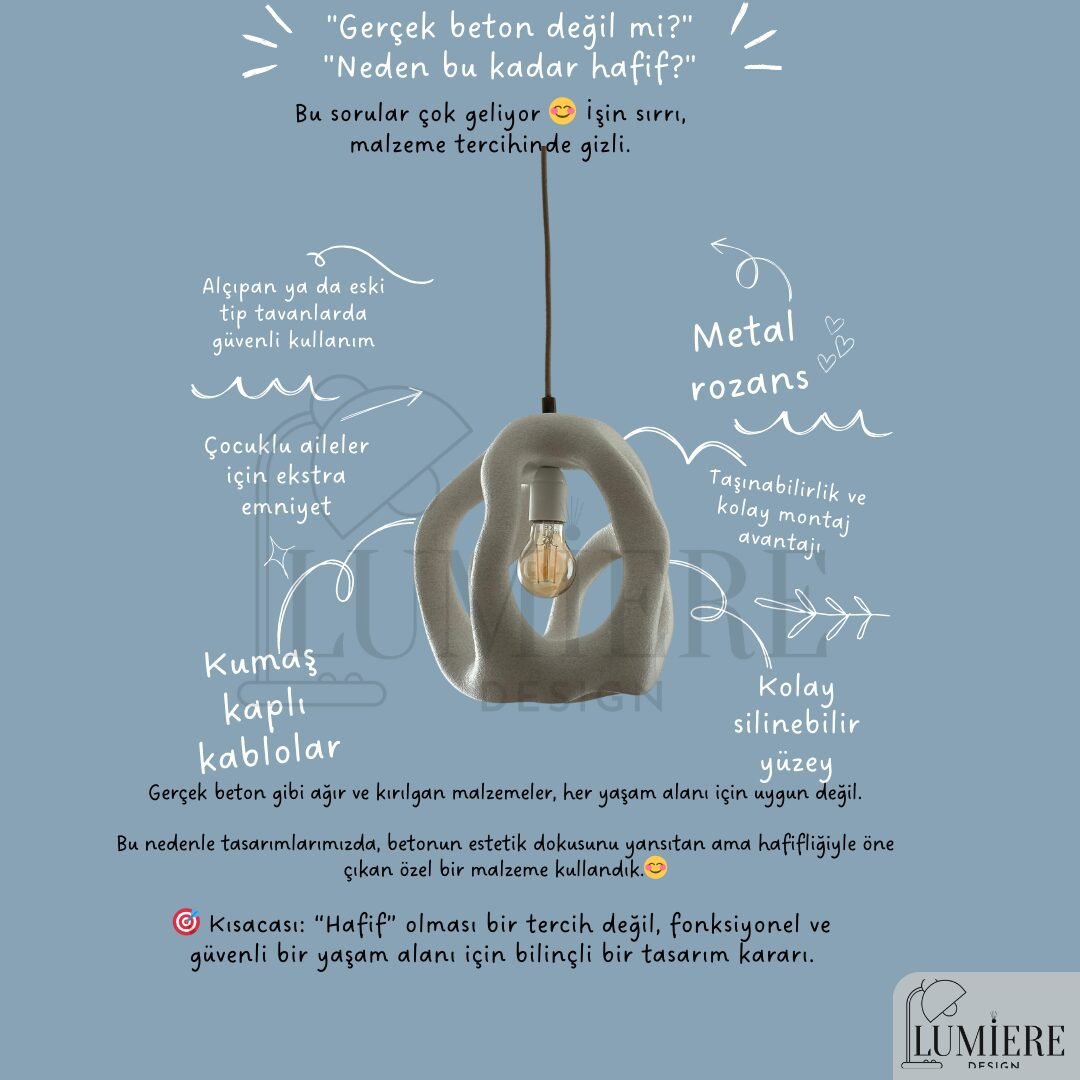 "Gerçek beton değil mi?"
"Neden bu kadar hafif?"
Bu sorular çok geliyor 😊 İşin sırrı,
malzeme tercihinde gizli.
Alçıpan ya da eski
tip tavanlarda
güvenli kullanım
Metal
rozans
Çocuklu aileler
için ekstra
emniyet
Taşınabilirlik ve
kolay montaj
avantajı
LUMİERE
DESIGN
Kumaş
kaplı
kablolar
Kolay
silinebilir
yüzey
Gerçek beton gibi ağır ve kırılgan malzemeler, her yaşam alanı için uygun değil.
Bu nedenle tasarımlarımızda, betonun estetik dokusunu yansıtan ama hafifliğiyle öne
çıkan özel bir malzeme kullandık.😊
🎯 Kısacası: “Hafif” olması bir tercih değil, fonksiyonel ve
güvenli bir yaşam alanı için bilinçli bir tasarım kararı.
LUMİERE
DESIGN